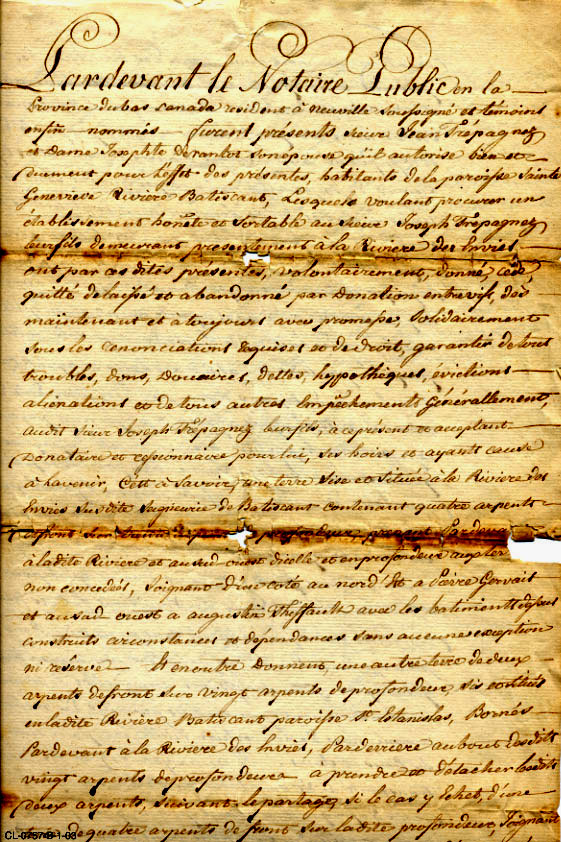 Pardevant le Notaire Public en la
Province du bas Canada resident à Neuville Soussigné et témoins
enfin nommés furent présents Sieur Jean Trépagnez
et Dame Josephte derantot Son epouse qu'il autorise bien et
duement pour l'effet des présentes, habitants de la paroisse Sainte
Genevieve Riviere Batiscant, Lesquels voulant procurer un
établissement honête et Sortable au Sieur Joseph Trépagnez
leur fils demeurant presentement à la Riviere des Envies
ont par ces dites présentes, volontairement, donné, cédé,
quitté delaissé et abandonné, par Donation entrevifs, dès
maintenant et à toujours avec promesse, Solidairement
sous les renonciations requises et de droit, garantir de tout
troubles, dons, Douaires, dettes, hypothèques, évictions
aliénations et de tous autres Empêchements Générallement,
audit Sieur Joseph Trépagnez leur fils, à ce présent et acceptant
Donataire et cessionnaire pour lui, ses hoirs et ayants cause
à l'avenir, C'est à Savoir, une terre Sise et Située à la Riviere des
Envies Susdite Seigneurie de Batiscant contenant quatre arpents
defront profondeur, prenant Pardevant
à ladite Riviere et au sud ouest d'icelle et en profondeur aux terres
non concedés, Joignant d'un coté au nord Est à Pierre Gervais
et au sud ouest à augustin Theffault avec les batiments dessus
construits circonstances et dependances sans aucune exception
ni réserve Et en outre Donnent, une autre terre de deux
arpents defront sur vingt arpents de profondeur, sis et situés
en ladite Riviere Batiscant paroisse St Stanislas, Bornés
Pardevant à la Riviere des Envies, Parderriere au bout desdits
vingt arpents de profondeur à prendre et détacher lesdits
deux arpents, suivant le partage, si le cas y Echet, d'une
de quatre arpents de front sur ladite profondeur, Joignant
CL-075748-1-03